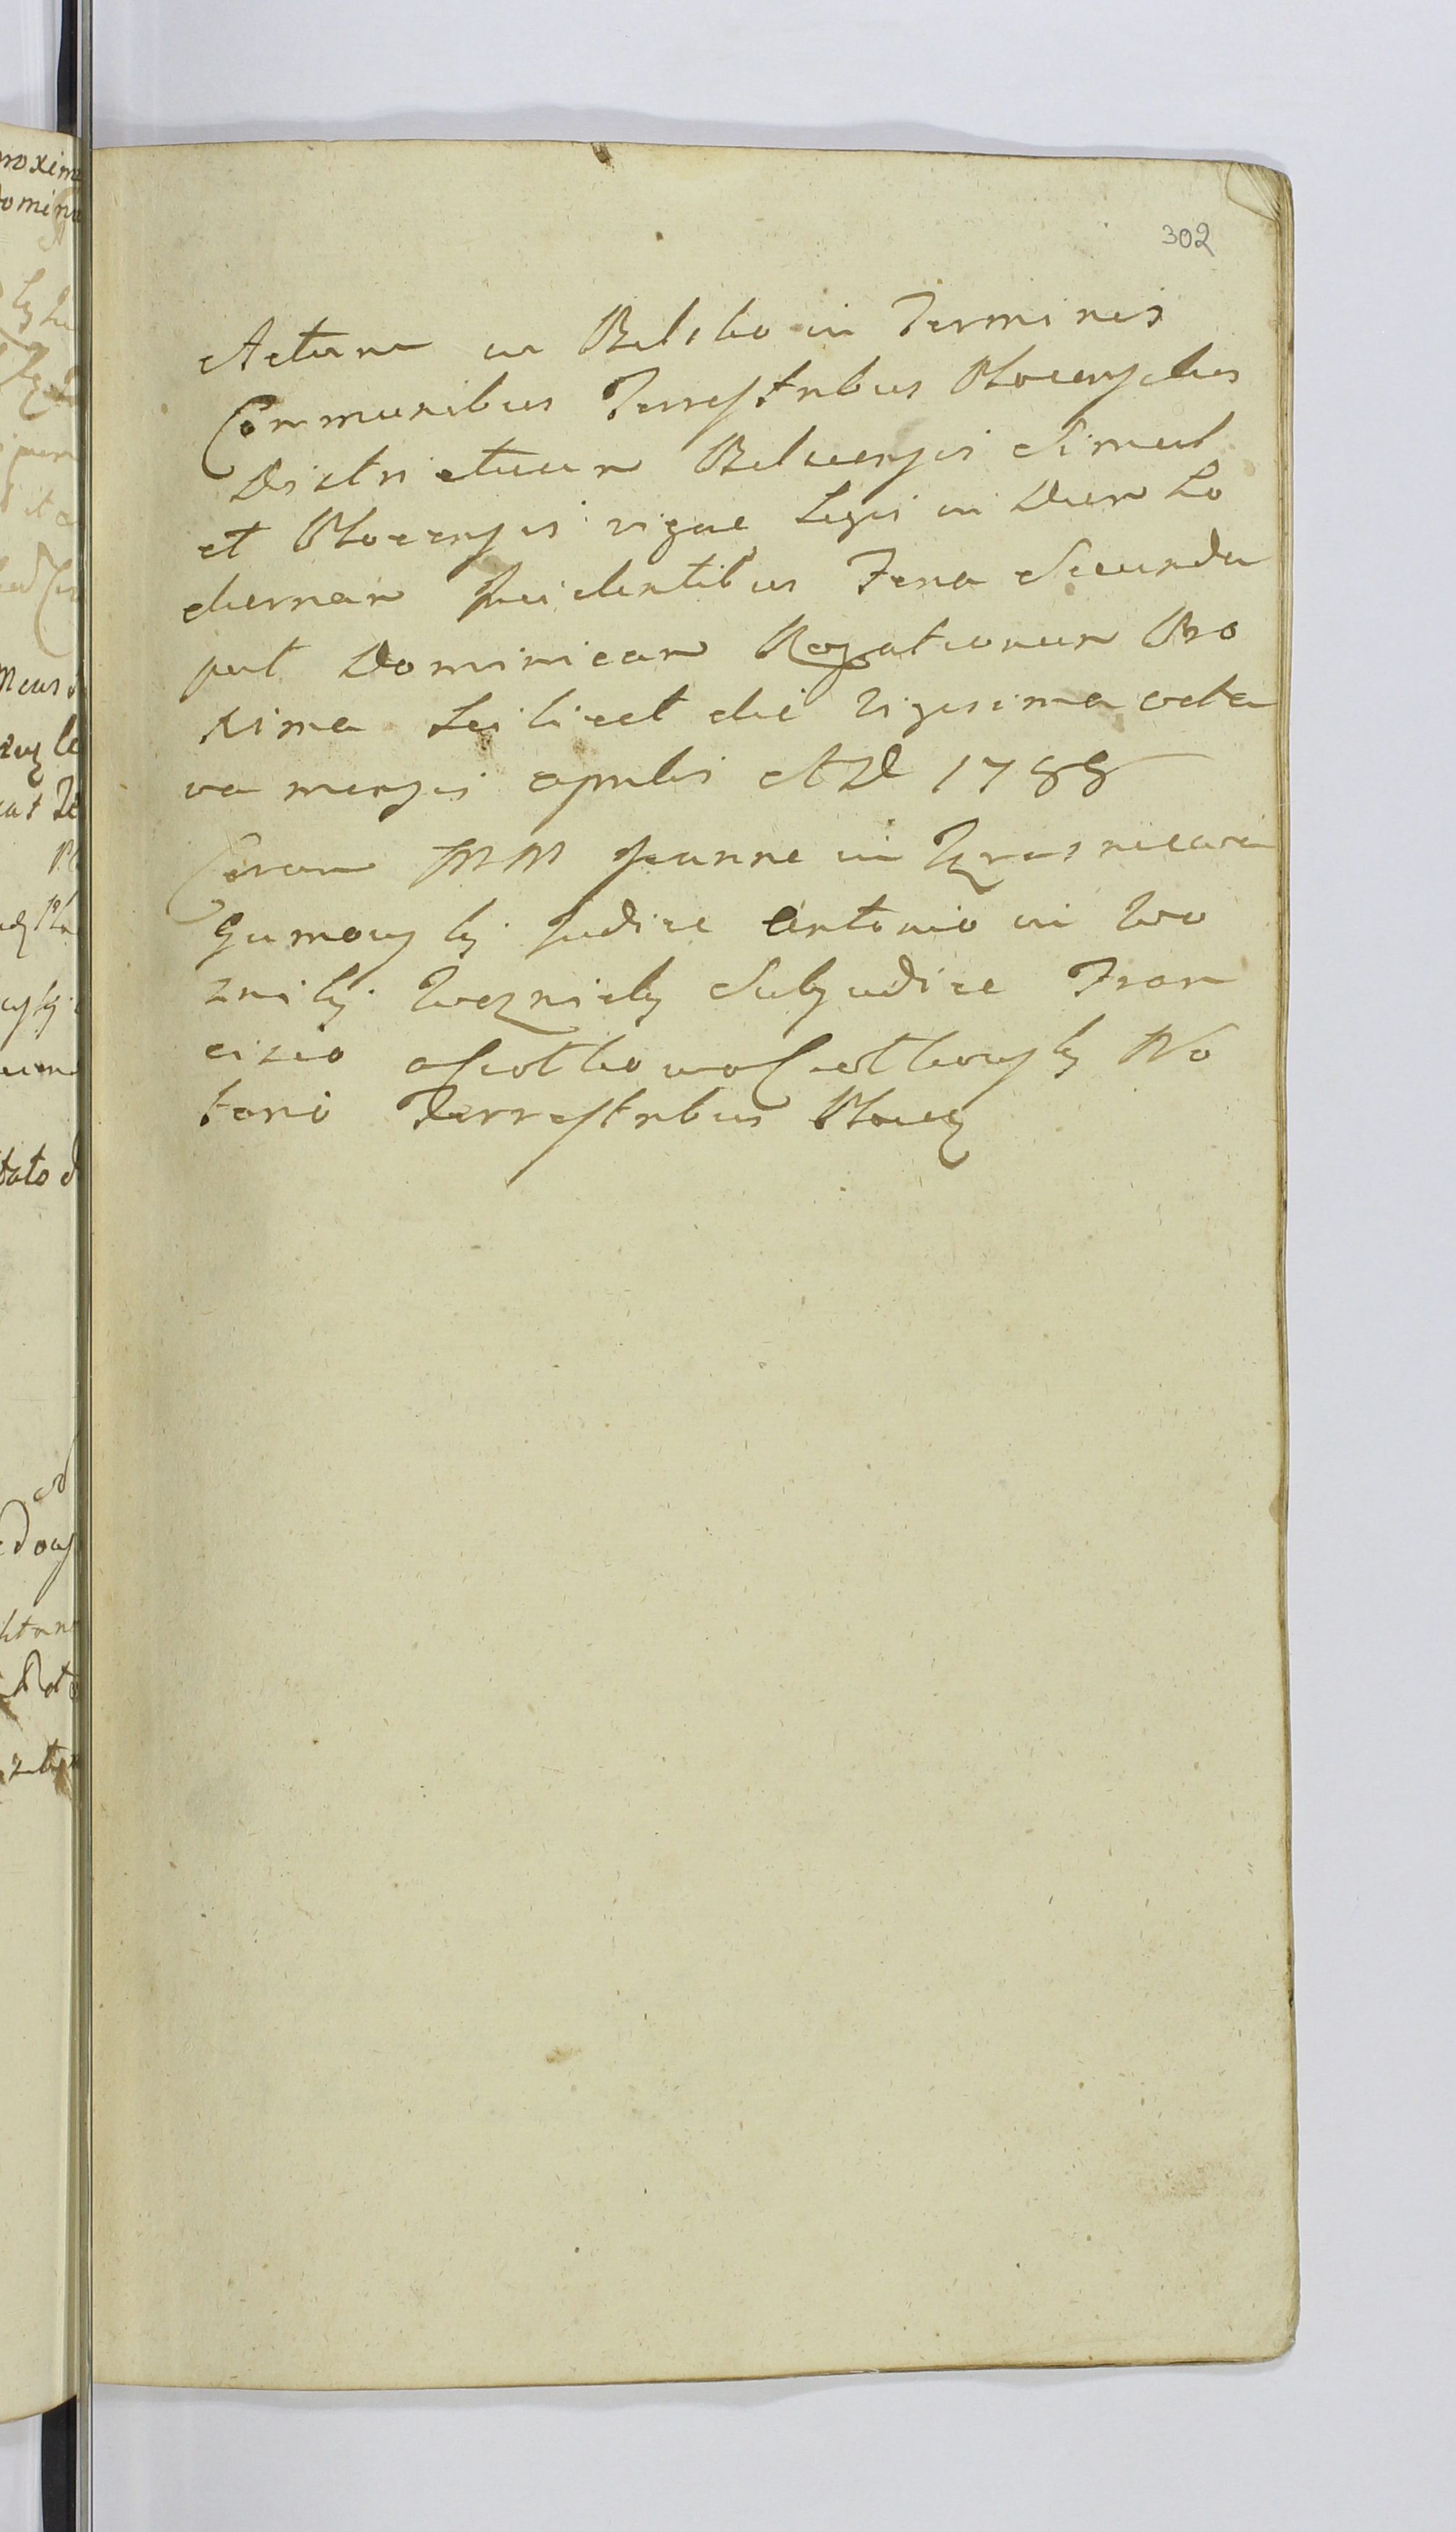 302
Actum in Belsko in Terminis
Communibus Terrestribus Plocensibus
Districtuum Belscensis Simul
et Plocensis vigore Legis in Diem Ho
diernam Incidentibus Feria Secunda
post Dominicam Rogationum Pro
xima Scilicet die Vigesima octa
va mensis Aprilis AD 1788
Coram MM Joanne in
Gumowskj Judice Antonio in Wo
znikj Woznickj Subjudice Fran
cisco No
tario Terrestribus Plocens